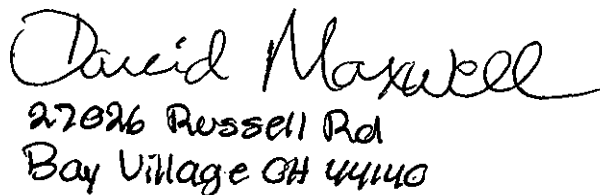 David Maxwell
27026 Russell Rd
Bay Village OH 44140